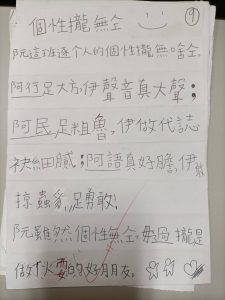 個性攏無仝 9
阮這班逐个人的個性攏無啥仝。
阿行足大方,伊聲音真大聲;
阿民,足粗魯,伊做代誌
袂細膩;阿語真好膽,伊敢
掠蟲豸,足勇敢,
阮雖然個性無仝,毋過攏是
做伙耍的好朋友。